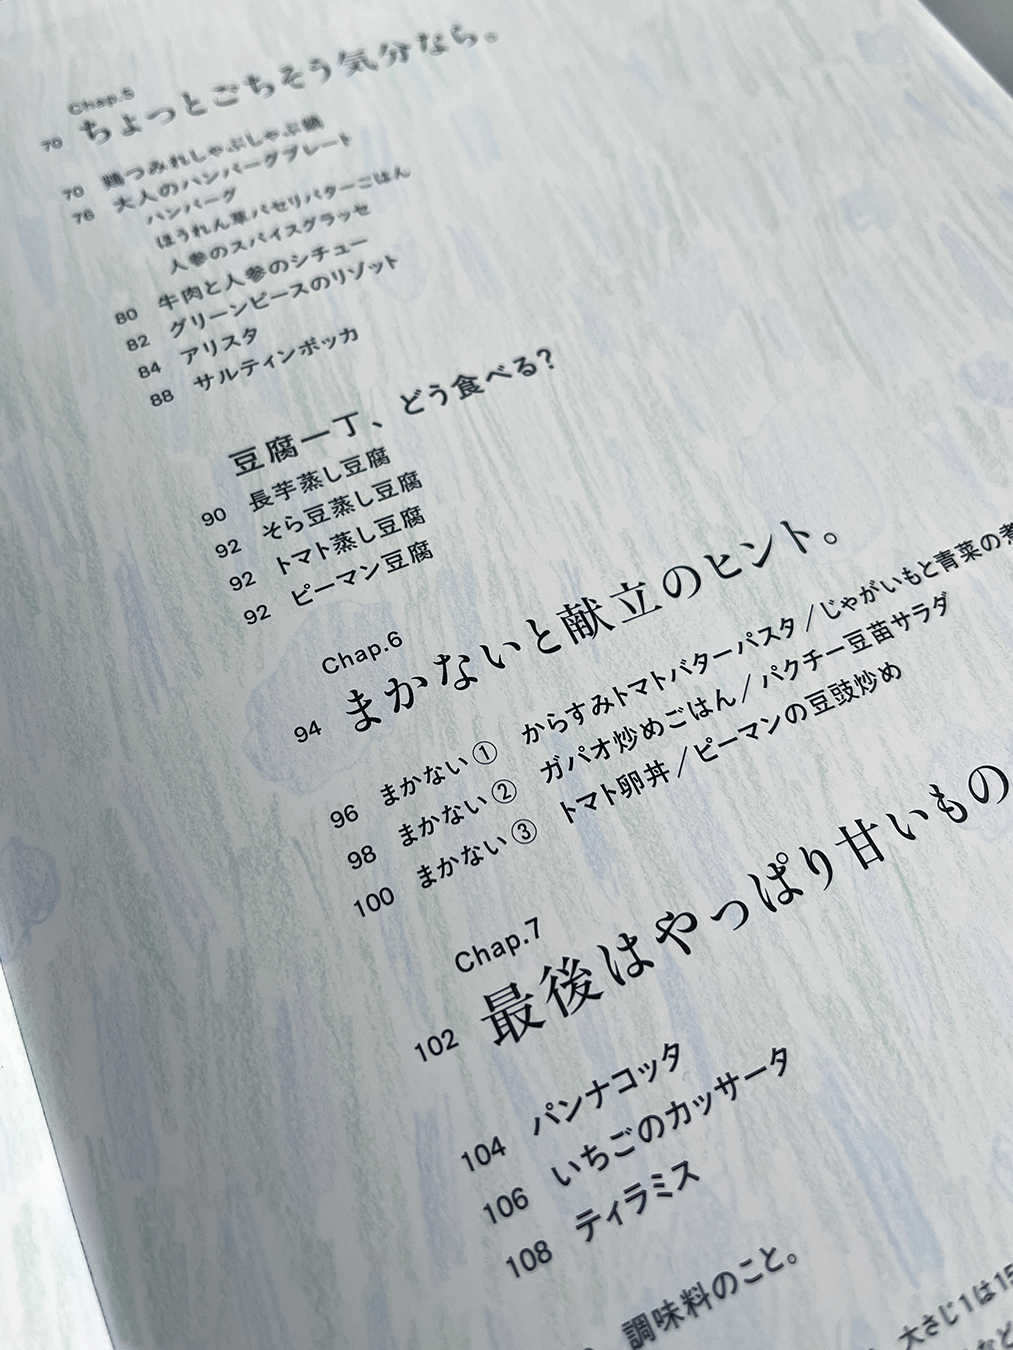 Chap.5
70 ちょっとごちそう気分なら。
70 鶏つみれしゃぶしゃぶ鍋
76 大人のハンバーグプレート
ハンバーグ
ほうれん草パセリバターごはん
人参のスパイスグラッセ
80 牛肉と人参のシチュー
82 グリーンピースのリゾット
84 アリスタ
88 サルティンボッカ
豆腐一丁、どう食べる?
90 長芋蒸し豆腐
92 そら豆蒸し豆腐
92 トマト蒸し豆腐
92 ピーマン豆腐
Chap.6
94 まかないと献立のヒント。
96 まかない① からすみトマトバターパスタ/じゃがいもと青菜の煮
98 まかない② ガパオ炒めごはん/パクチー豆苗サラダ
100 まかない③ トマト卵丼/ピーマンの豆豉炒め
Chap.7
102 最後はやっぱり甘いもの
104 パンナコッタ
106 いちごのカッサータ
108 ティラミス
調味料のこと。
大さじ1は15
など